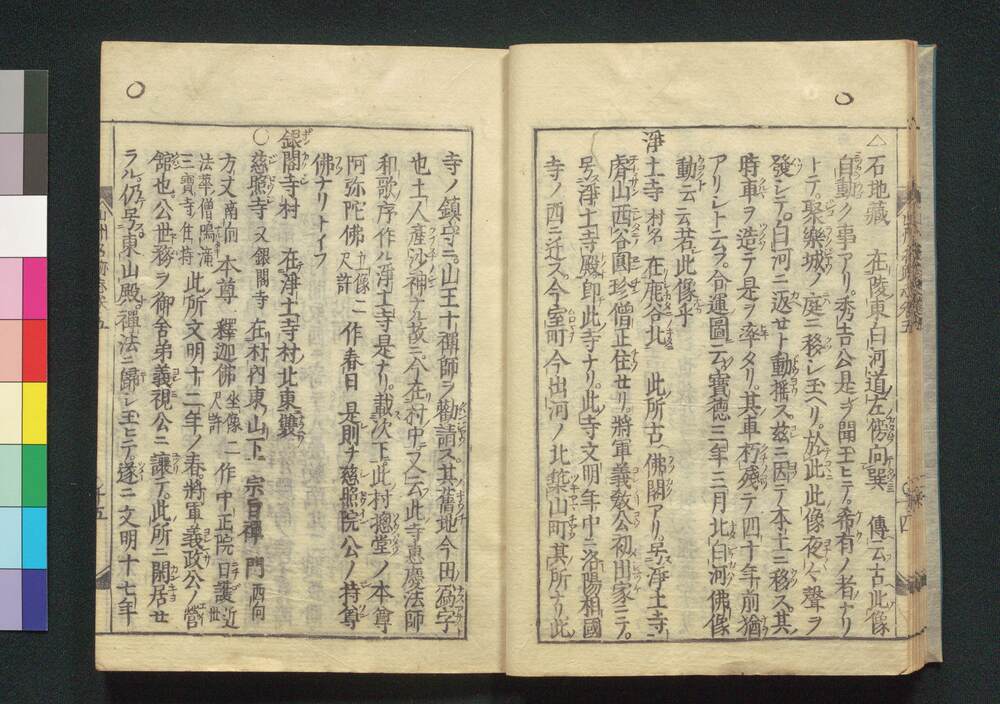 ○
△石地藏 在陵東白河道左傍向巽 傳云古此像
自動ク事アリ。秀吉公是ヲ聞玉ヒテ。希有ノ者ナリ
トテ。聚樂城ノ庭ニ移シ玉ヘリ。於此此像夜々聲ヲ
發シテ。白河ニ返セト動揺ス。茲ニ因テ本土ニ移ス其
時車ヲ造テ是ヲ率タリ。其車朽殘テ四十年前猶
アリシト云フ。今運圖云寶德三年三月北白河佛像
動云云若此像乎
淨土寺 村名 在鹿谷北 此所古ヘ佛閣アリ。号淨土寺
睿山西谷圓珍僧正住セリ。將軍義教公初出家ニテ。
号ス淨土寺殿即此寺ナリ。此寺文明年中ニ洛陽相國
寺ノ西ニ迁ス今室町今出河ノ北築山町其所ナリ此
○
寺ノ鎮守ニ。山王十禪師ヲ勸請ス。其舊地今田ノ字
也土人産沙神ナル故ニ。今在村中又云此寺惠慶法師
和歌ノ序作ル淨土寺是ナリ。載次下此村摠堂ノ本尊
阿弥陀佛 尺許 ニ作春日 是則チ慈照院公ノ持尊
佛ナリトイフ
銀閣寺村 在淨土寺村北東
○慈照寺 又銀閣寺 在村内東山下 宗旨禪 門西向
方丈 南向 本尊 釋迦佛 坐像二尺許 作中正院日護 近世
法華僧鳴滝三寶寺住持 此所文明十二年ノ春。將軍義政公ノ營
館也。公世務ヲ御舎弟義視公ニ讓テ。此所ニ閑居せ
ラル。仍号東山殿。禪法ニ歸シ玉ヒテ。遂ニ文明十七年